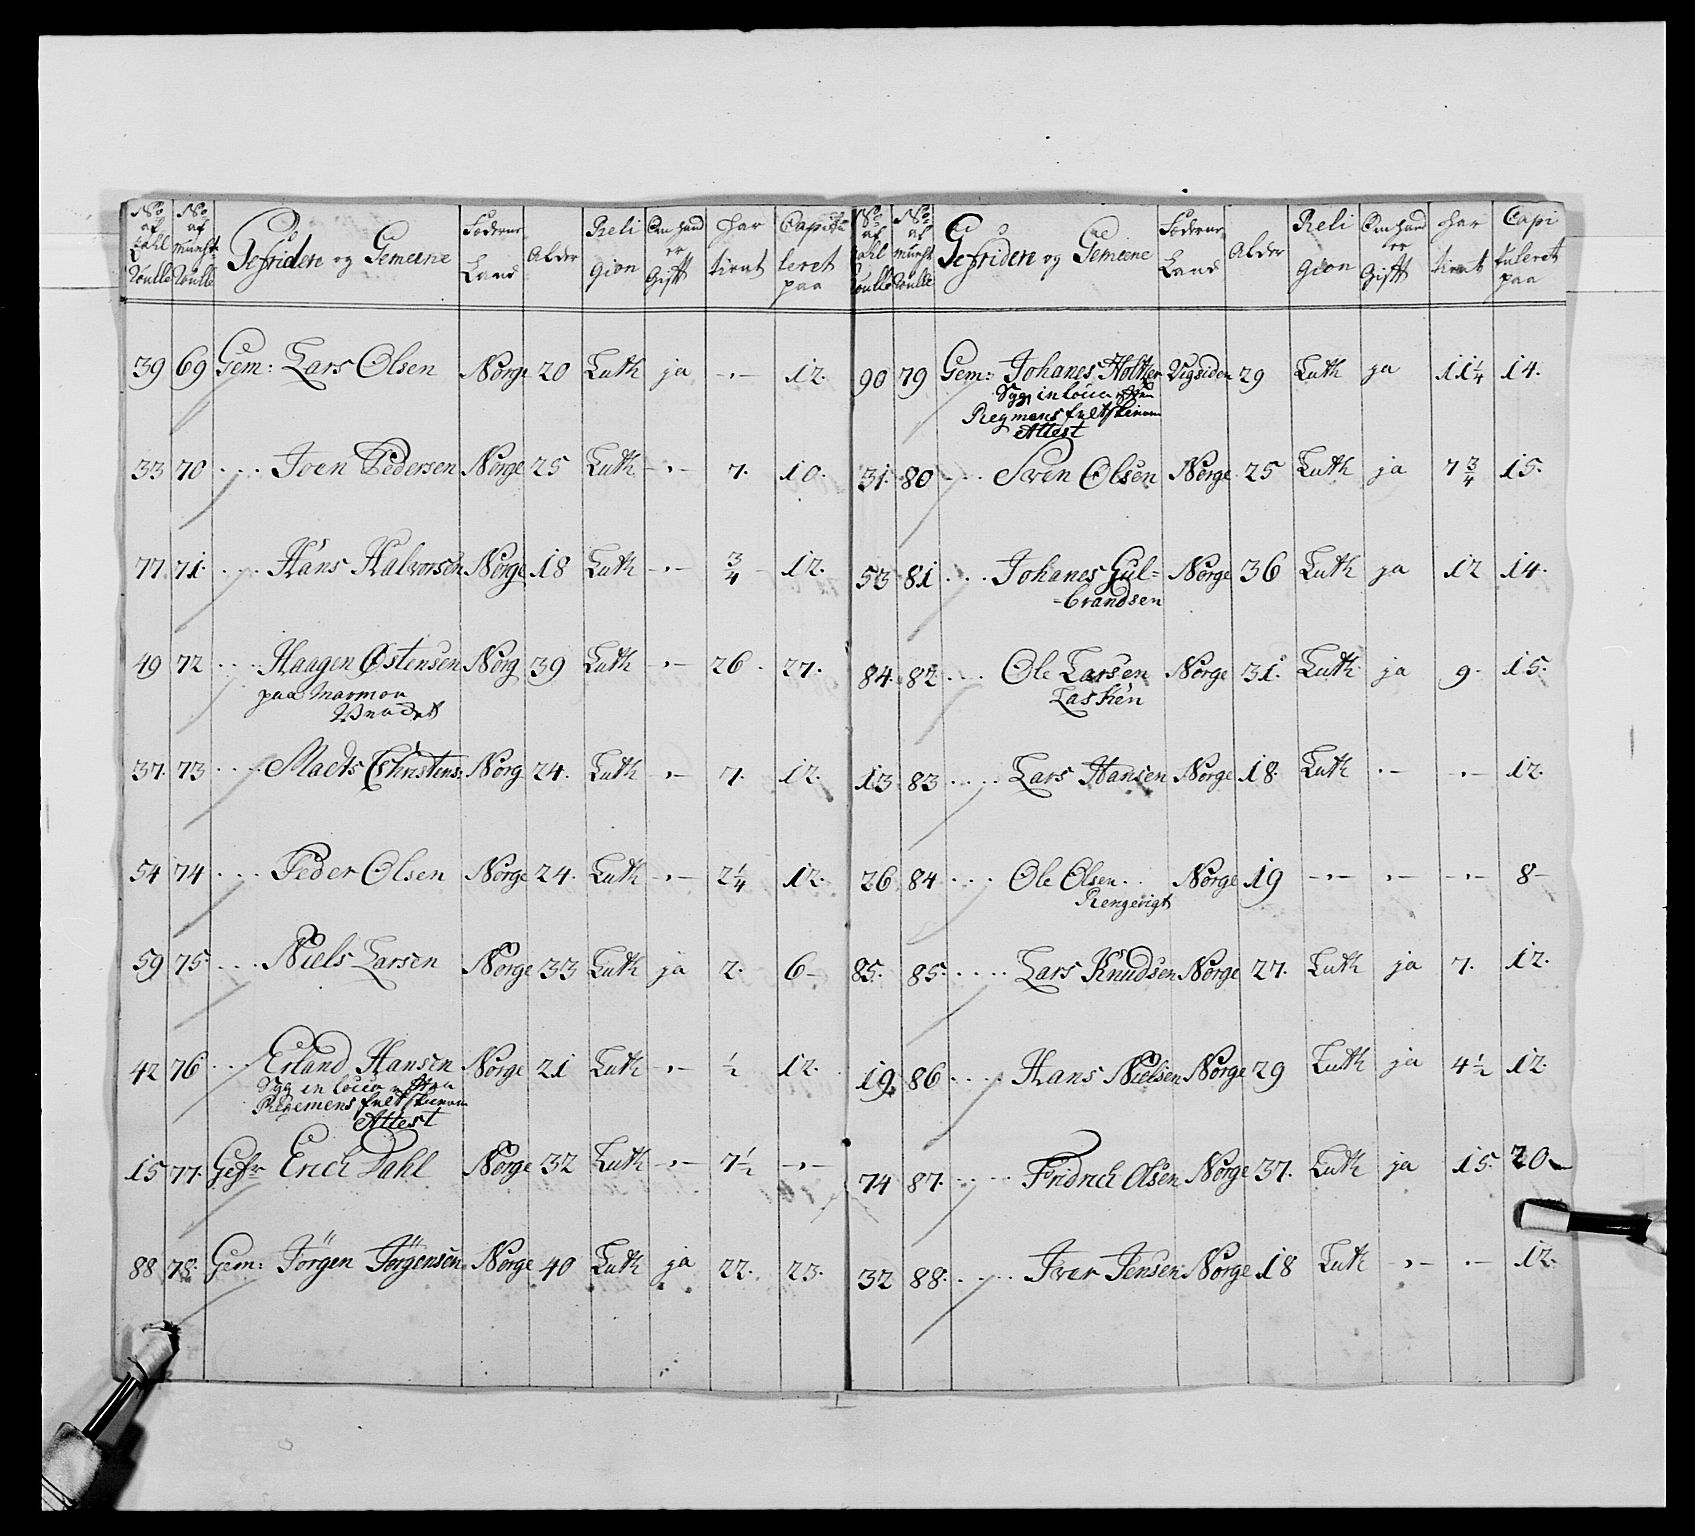 No af Tahl Roulle | No af Munst: Roulle | Gefridere og Gemeene | Føderne Land | Alder | Reli gion | Om hand er Gifft | har tient | Capitu leret paa
39 69 Gem: Lars Olsen Norge 20 Luth ja -,- 12.
33 70 .... Iven Pedersen Norge 25 Luth -,- 7. 10.
77 71. .... Hans Halvorsen Norge 18 Luth -,- 3/4 12.
49 72 .... Haagen Østensen Norg 39 Luth -,- 26 27.
paa
37. 73 .... Madts Christens: Norg 24. Luth -,- 7. 12.
54 74 .... Peder Olsen Norge 24. Luth -,- 2 1/4 12
59 75. .... Niels Larsen Norge 33 Luth ja 2. 6-
42 76 .... Erland Hansen Norge 21 Luth -,- 1/2 12.
Syg in loco efter
Regemens feltskierem
Attest
15 77. Gefr Erich Dahl Norge 32 Luth -,- 7 1/2 -,-
88 78. Gem: Jörgen Jörgensen Norge 40 Luth ja 22. 23.
No af Tahl Roulle | No af Munst Roulle | Gefridere og Gemeene | Føderne Land | Alder | Reli gion | Om hand er Gifft | har tient | Capi tuleret paa
90 79 Gem: Johanes Holter Vigsiden 29 Luth ja 11 1/4 14.
Syg in loco efter
Regmens feltskierem
Attest
31. 80 .... Sven Olsen Norge 25 Luth ja 7 3/4 15.
53 81. ... Johanes Gul=
=brandsen Norge 36 Luth ja 12 14.
84. 82 .... Ole Larsen Norge 31. Luth ja 9- 15.
Lasken
13 83 ..... Lars Hansen Norge 18. Luth .- -,- 12.
26 84 .... Ole Olsen.. Norge 19 -,- -,- -,- 8-
Rengevigt
85. 85. .... Lars Knudsen Norge 27. Luth ja 7. 12.
19. 86 .... Hans Nielsen Norge 29 Luth ja 4 1/2 12.
74 87. ..... Fridrich Olsen Norge 37. Luth ja 15. 20
32 88. ..... Iver Jensen Norge 18 Luth -,- .- 12.